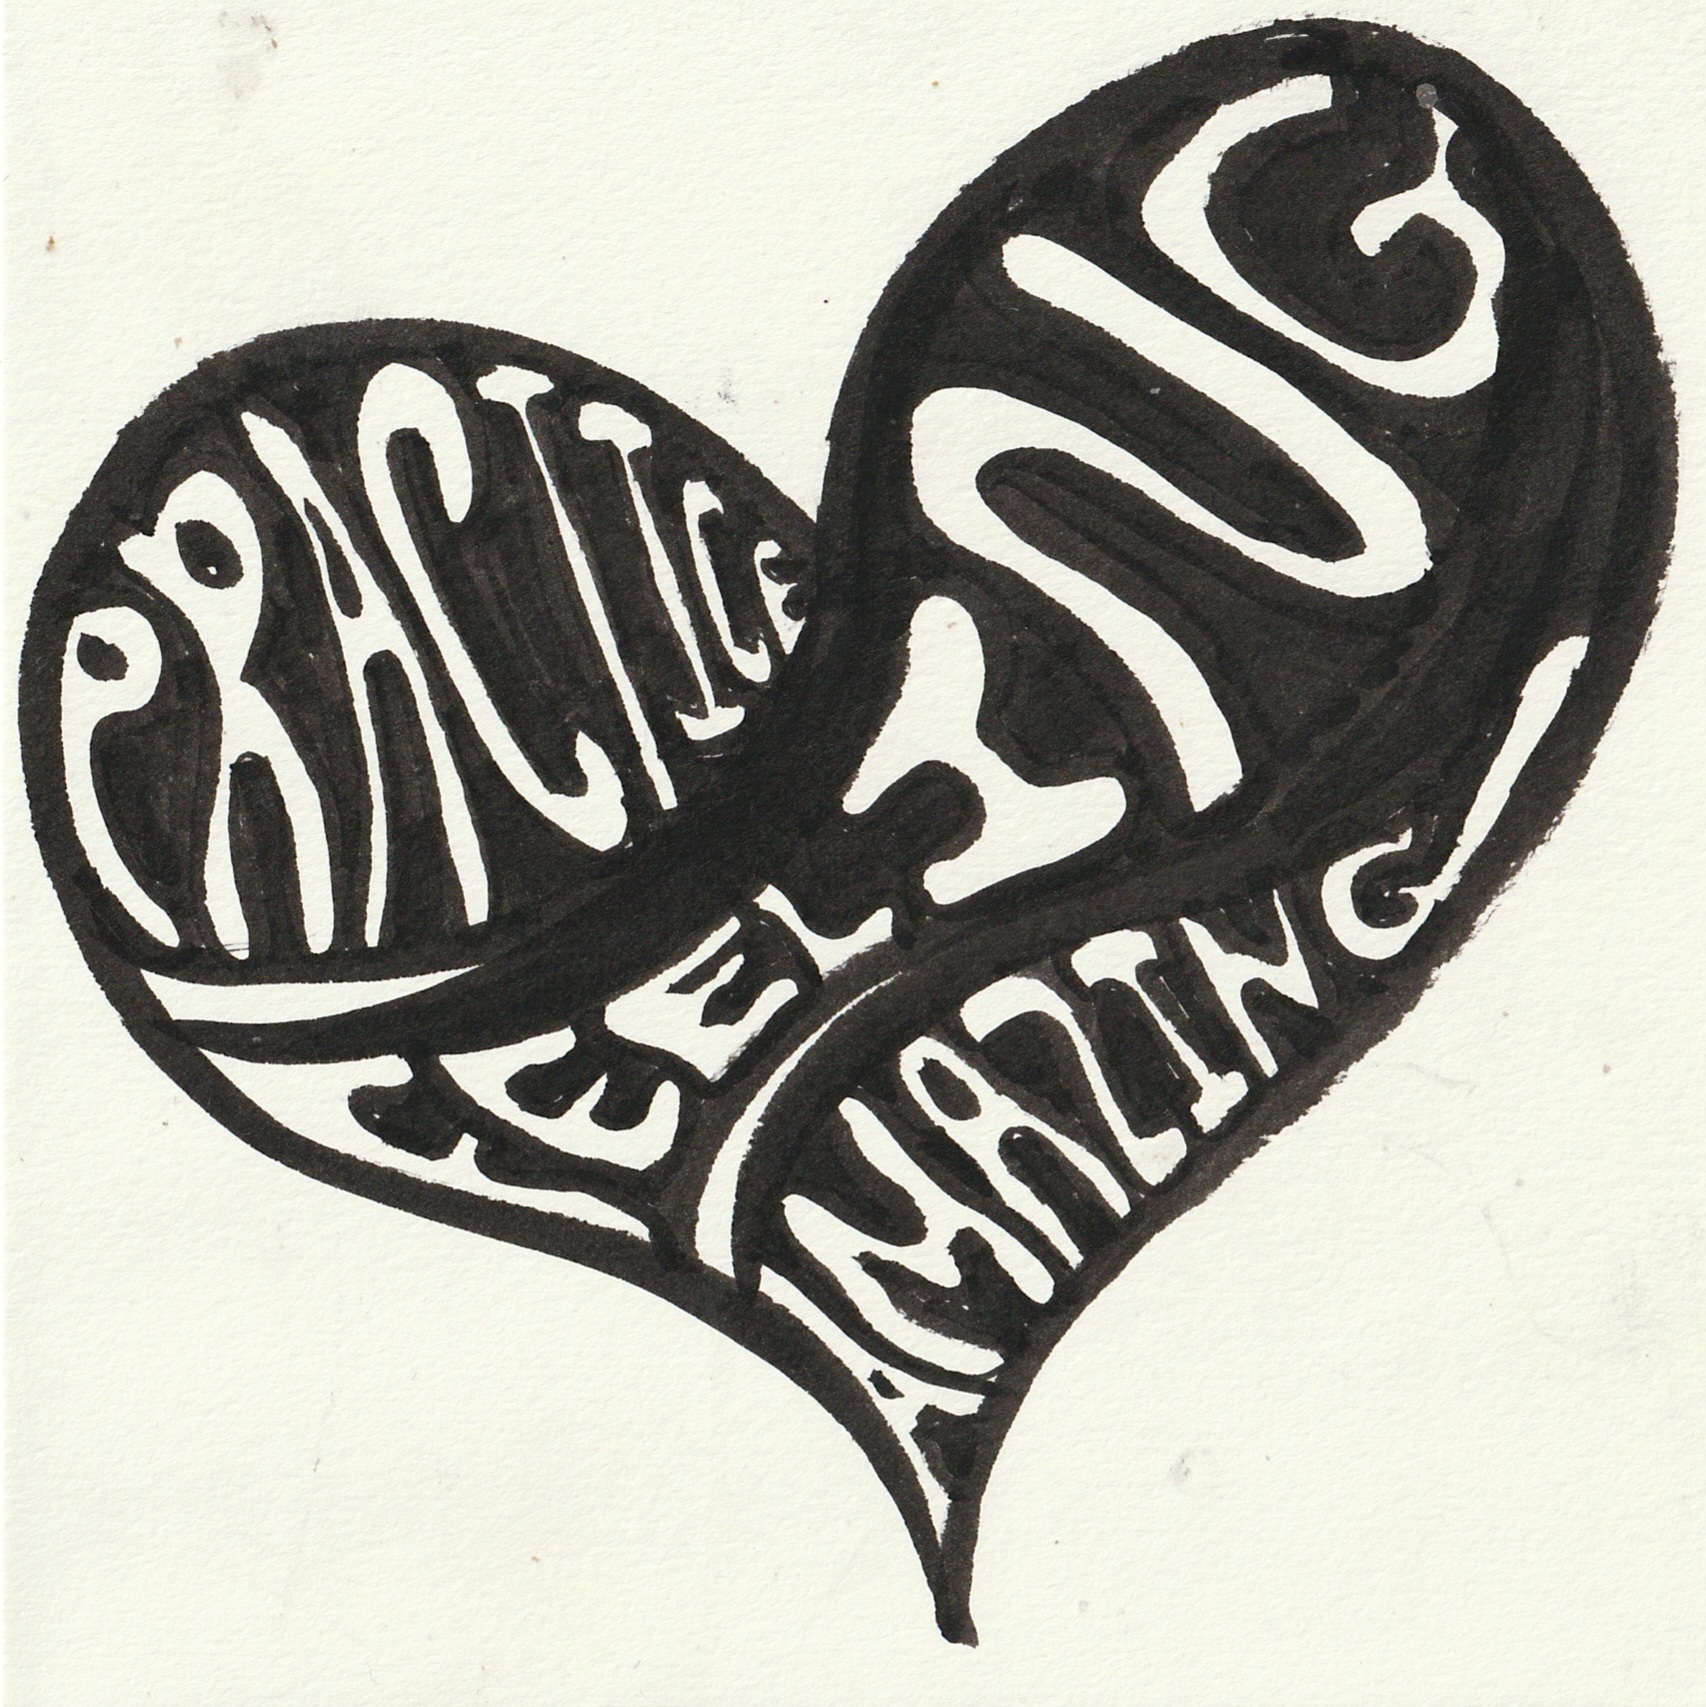 PRACTICE
FEELING
AMAZING